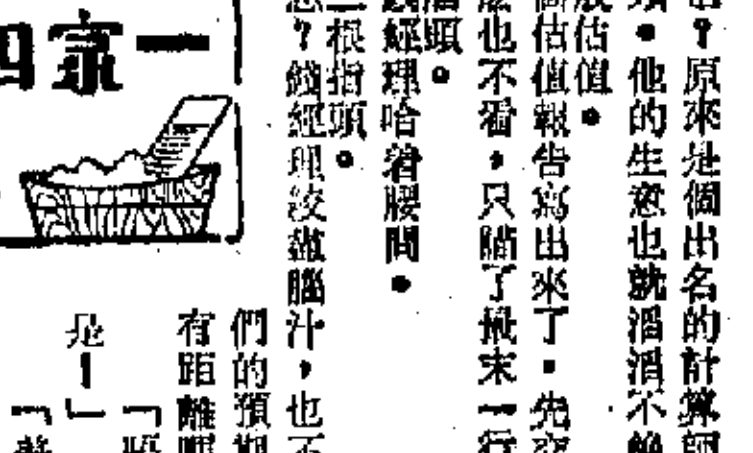 ？原來是個出名的計算師
頭。他的生意也就滔滔不絶
估值。
個估值報告寫出來了。先交
也不看，只瞄了最末一行
頭。
錢經理哈着腰問。
一根指頭。
？錢經理絞盡腦汁，也不
們的預期
有距離
「
是！」
一家四